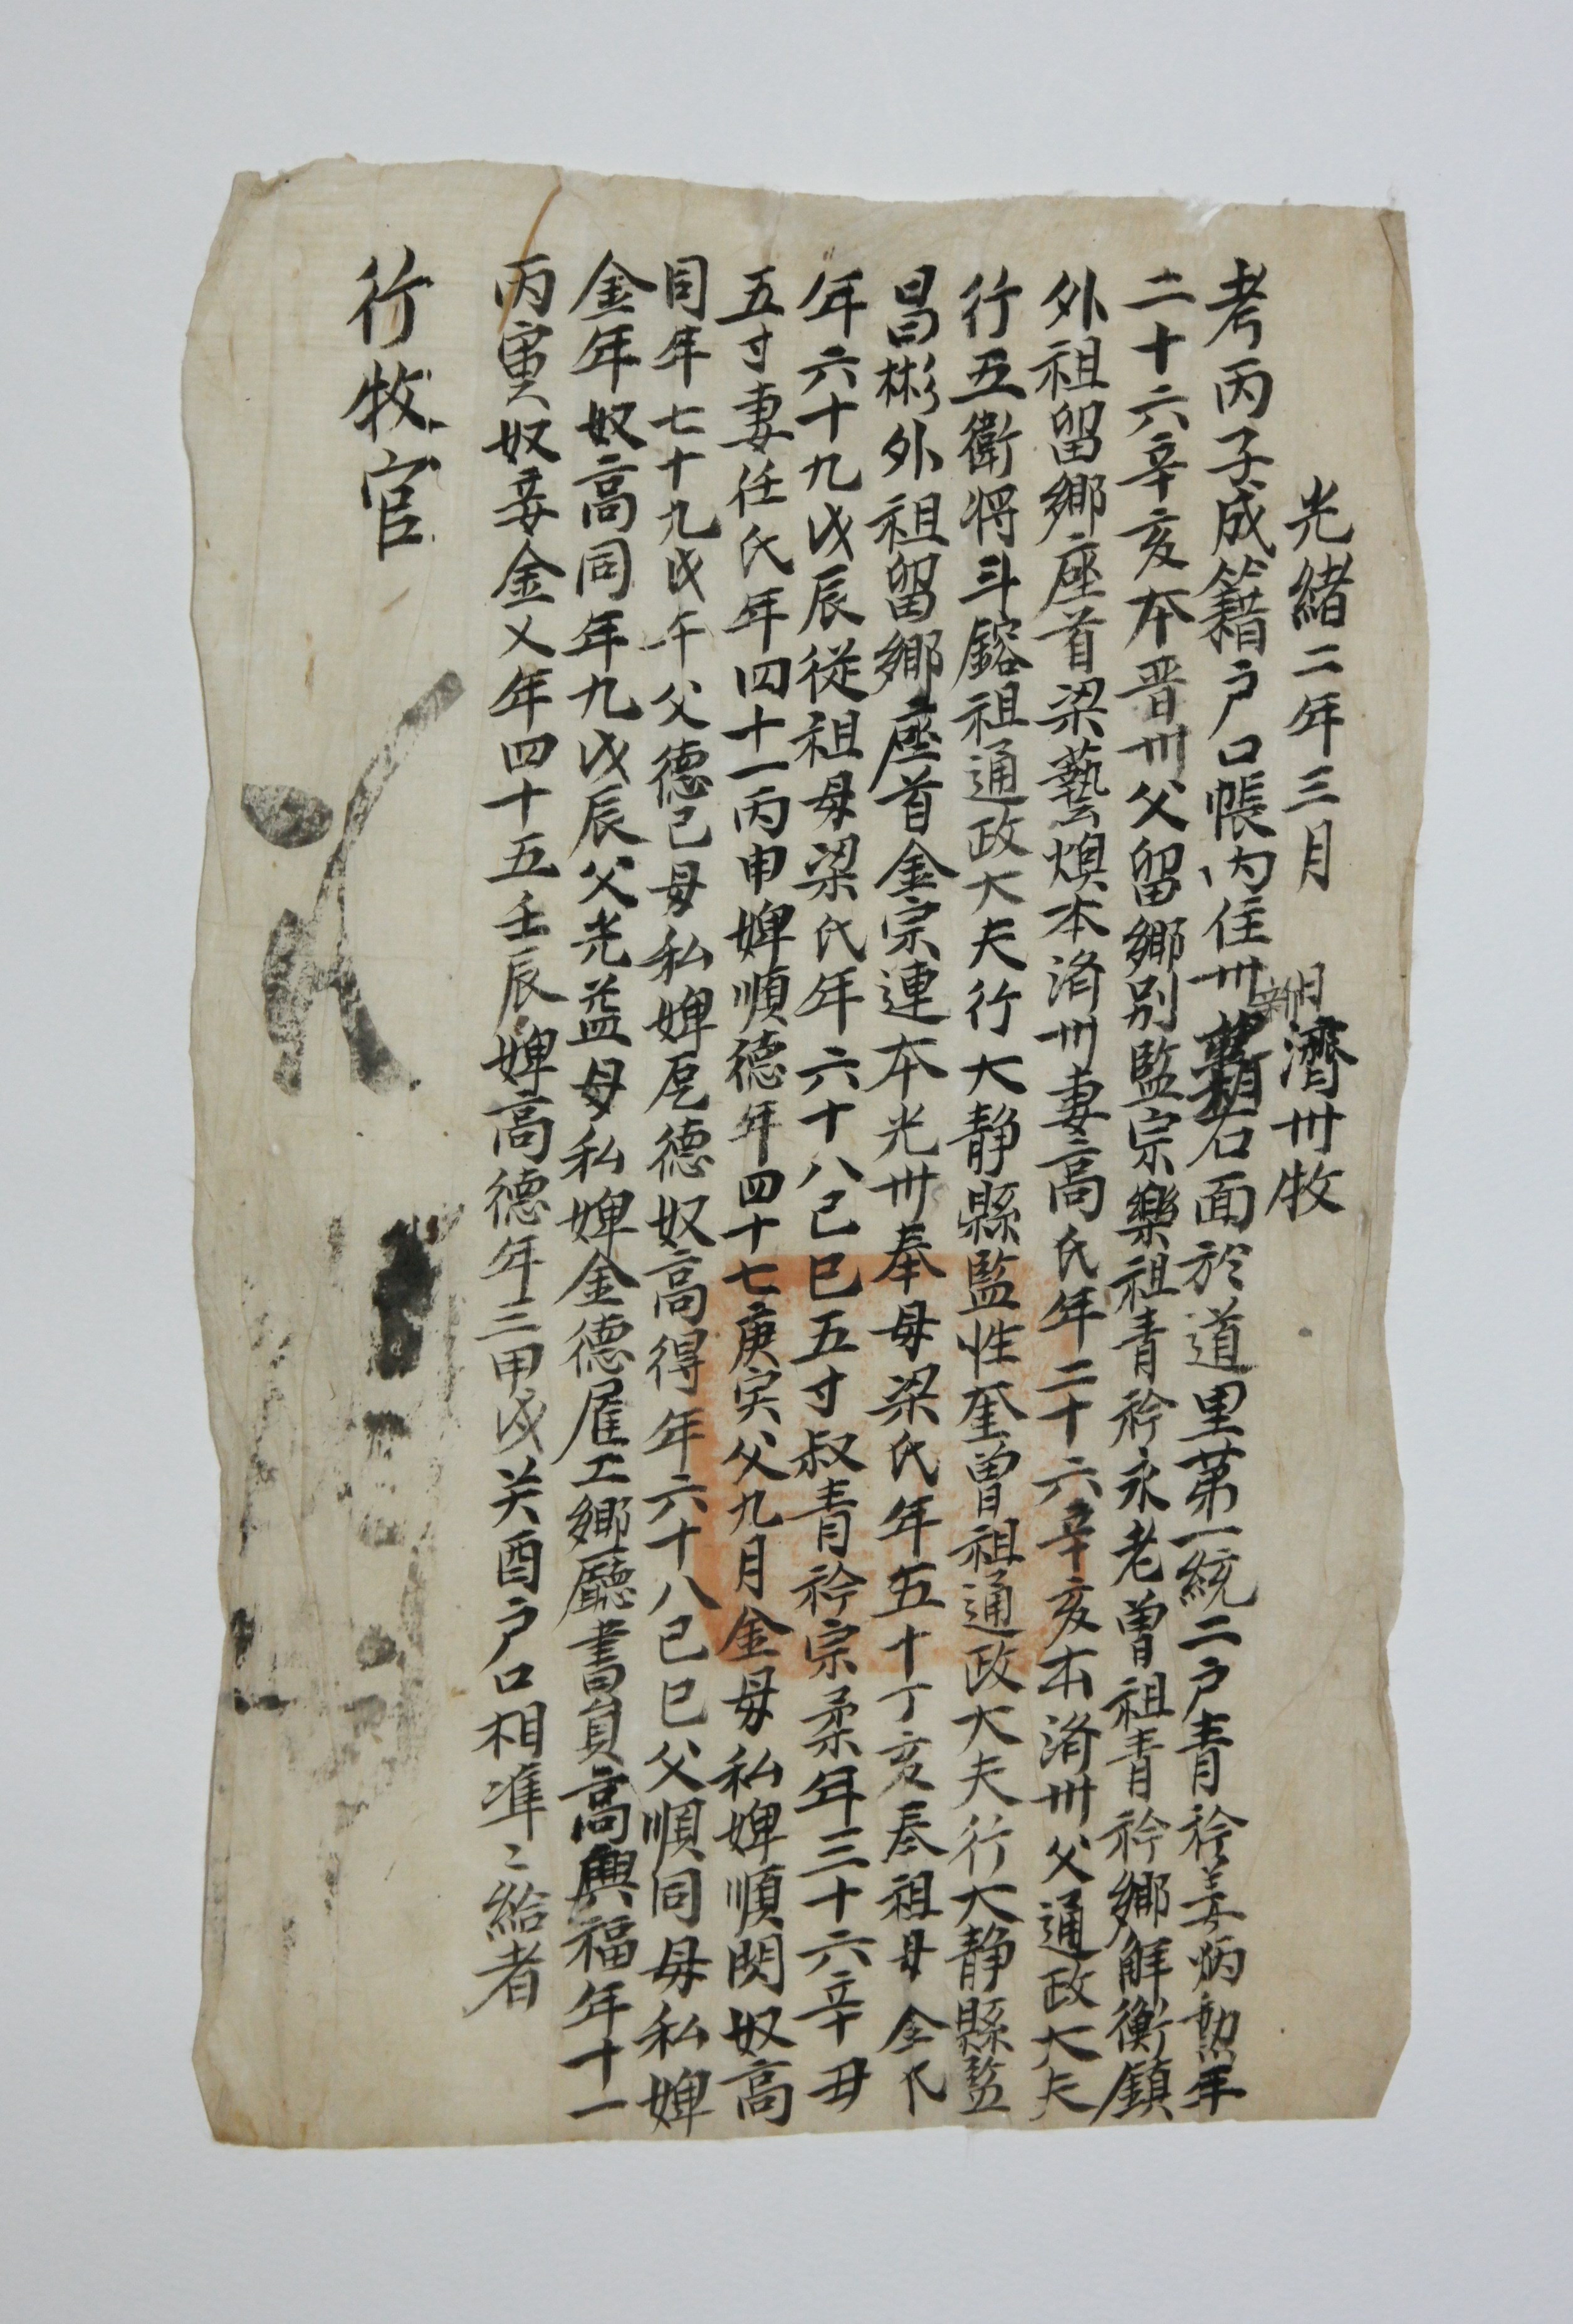 光緒二年三月 日 濟州牧
考丙子成籍戶口帳內住州 面於道里苐一統二戶青衿姜炳勲年
二十六辛亥本晋州父留鄉別監宗樂祖青衿永老曽祖青衿鄉解衡鎮
外祖留鄉座首梁藝煥本济州妻高氏年二十六辛亥本济州父通政大夫
行五衛将斗鎔祖通政大夫行大静縣監性奎曽祖通政大夫行大静縣監
昌彬外祖留鄉座首金宗連本光州奉母梁氏年五十丁亥奉祖母金氏
年六十九戊辰従祖母梁氏年六十八己巳五寸叔青衿宗柔年三十六辛丑
五寸妻任氏年四十一丙申婢順德年四十七庚寅父九月金母私婢順閃奴高
同年七十九戊午父德己母私婢 德奴高得年六十八己巳父順同母私婢
金年奴高同年九戊辰父光益母私婢金德雇工鄉廳書員高興福年十一
丙寅奴妾金 年四十五壬辰婢高德年三甲戌 酉戶口相凖〻給者
行牧官